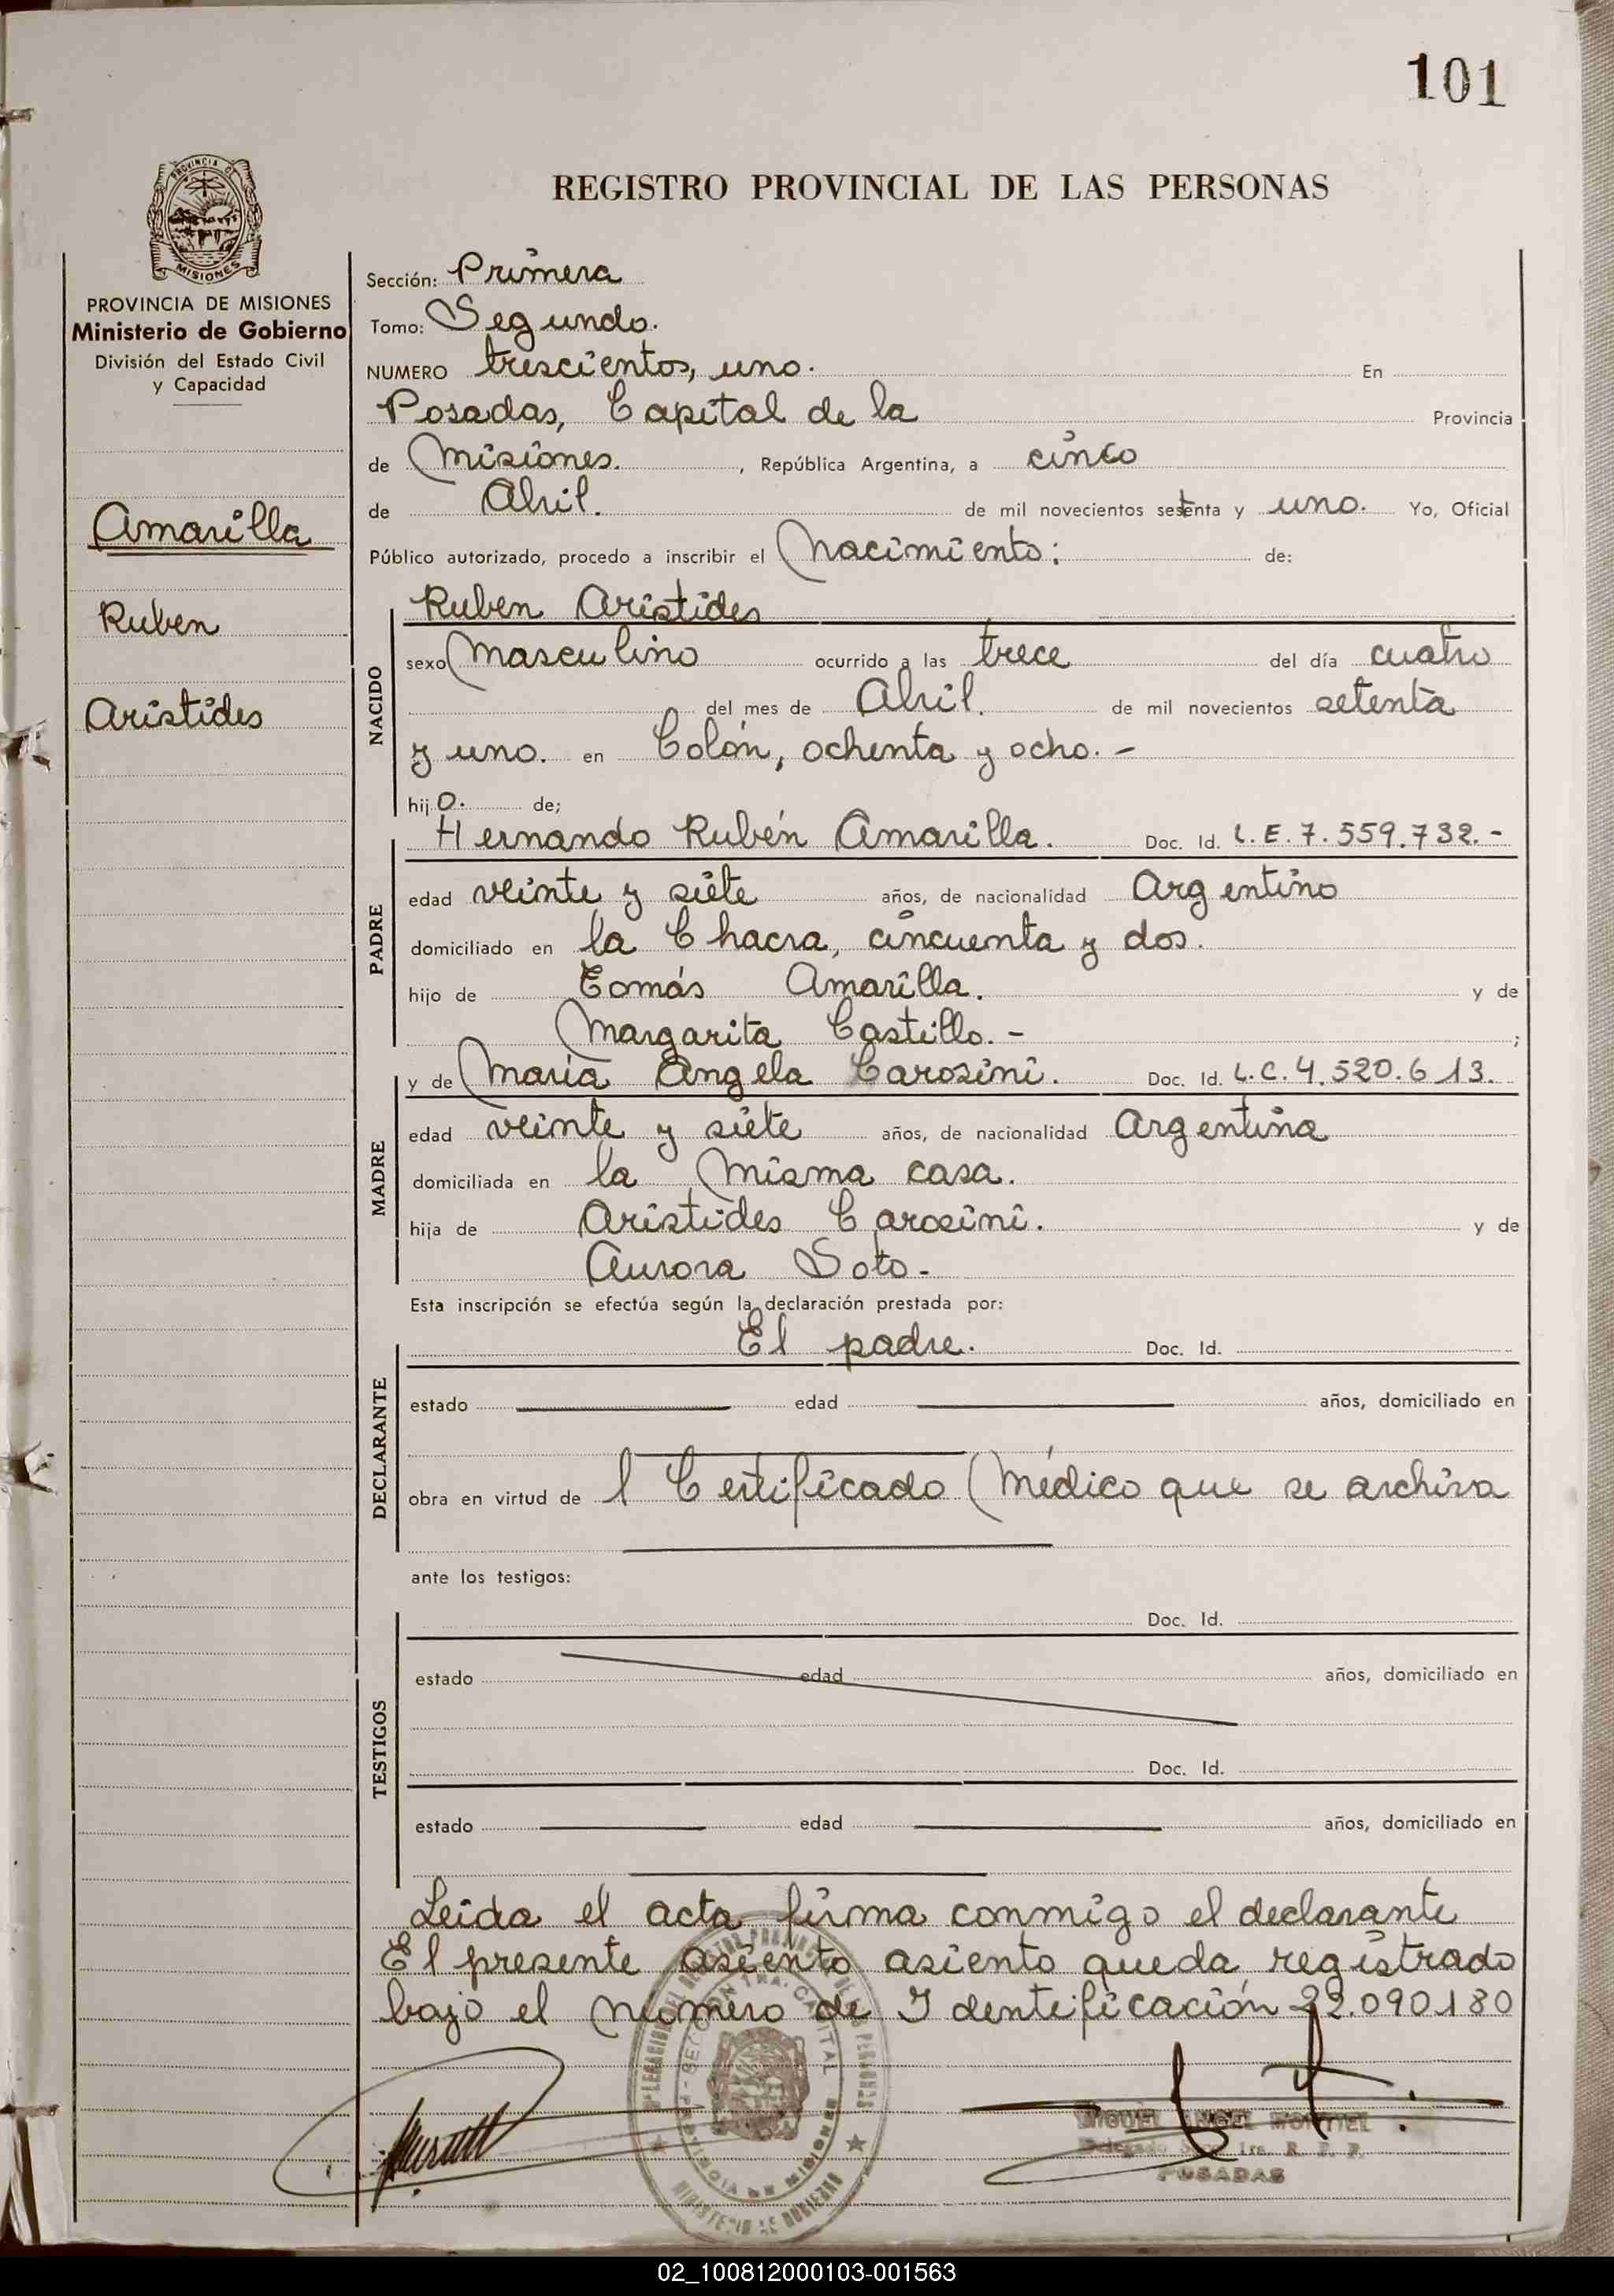 101
REGISTRO PROVINCIAL DE LAS PERSONAS
PROVINCIA DE
MISIONES
PROVINCIA DE MISIONES
Ministerio de Gobierno
División del Estado Civil
y Capacidad
Amarilla
Ruben
Aristides
Sección: Primera
Tomo: Segundo.
NUMERO trescientos, uno. En
Posadas, Capital de la Provincia
de Misiones. , República Argentina, a cinco
de Abril. de mil novecientos setenta y uno. Yo, Oficial
Público autorizado, procedo a inscribir el Nacimiento: de:
NACIDO
Ruben Aristides
sexo Masculino ocurrido a las trece del día cuatro
del mes de Abril. de mil novecientos setenta
y uno. en Colón, ochenta y ocho. -
hijo. de;
PADRE
Hernando Rubén Amarilla. Doc. Id. L.E. 7.559.732.-
edad veinte y siete años, de nacionalidad Argentino
domiciliado en la Chacra, cincuenta y dos.
hijo de Tomás Amarilla. y de
Margarita Castillo. - ;
MADRE
y de María Angela Carosini. Doc. Id. L.C. 4.520.613.
edad veinte y siete años, de nacionalidad Argentina
domiciliada en la Misma casa.
hija de Aristides Carosini. y de
Aurora Soto.-
Esta inscripción se efectúa según la declaración prestada por:
DECLARANTE
El padre. Doc. Id.
estado edad años, domiciliado en
obra en virtud de l Certificado Médico que se archiva
ante los testigos:
TESTIGOS
Doc. Id.
estado edad años, domiciliado en
Doc. Id.
estado edad años, domiciliado en
Leida el acta firma conmigo el declarante
El presente asiento asiento queda registrado
bajo el Número de Identificación 22.090.180
MIGUEL ANGEL MONTIEL
Delegado Secc. 1ra. R. P. P.
POSADAS
02_100812000103-001563